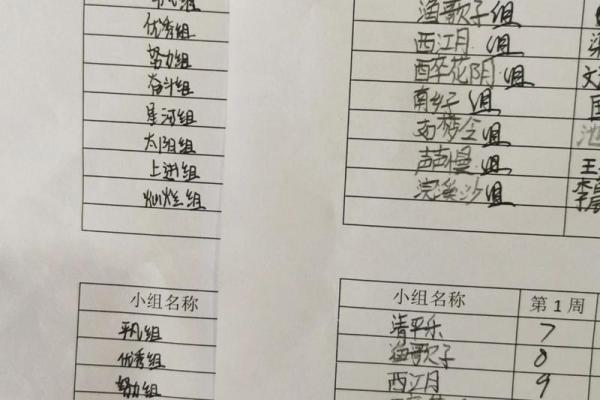 优秀组
努力组
奋斗组
星河组
太阳组
上进组
灿烂组
小组名称
平凡组
优秀组
努力组
渔歌子组
西江月组
醉花阴组
南乡子组
如梦令组
声声慢组
王
浣溪沙组
李
小组名称 第1周
清平乐 7
渔歌子 8
西江月 9